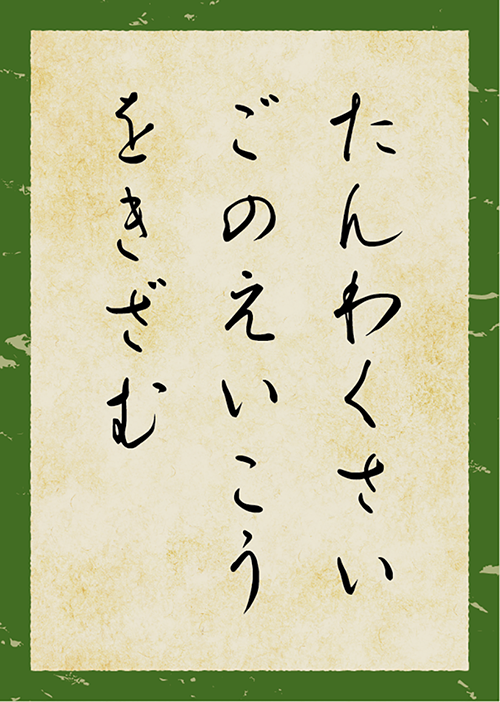 たんわくさい
ごのえいこう
をきざむ